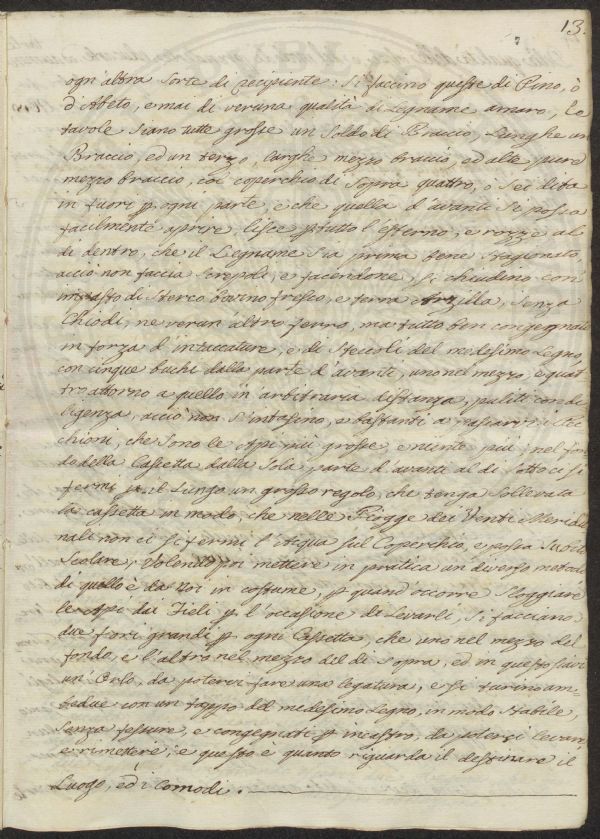 13.
ogn'altra sorte di recipiente: Si faccino queste di Pino, ò
d'Abeto, e mai di veruna qualità di Legname amaro, Le
tavole siano tutte grosse un Soldo di Braccio, Lunghe un
Braccio, ed un terzo, Larghe mezzo braccio, ed alte pure
mezzo braccio, col coperchio di sopra quattro, o sei dita
in fuori p ogni parte, e che quella d'avanti si possa
facilmente aprire, lisce p tutto l'esterno, e rozze al
di dentro, che il Legname sia prima bene stagionato,
acciò non faccia screpoli, e facendone, si chiudino con
impasto di sterco bovino fresco, e terra Argilla, senza
Chiodi, ne verun'altro ferro, ma tutto ben congegnato
in forza d'intaccature, e di steccoli del medesimo Legno,
con cinque buchi dalla parte d'avanti, uno nel mezzo, e quat
tro attorno a quello in arbitraria distanza, puliti con di
ligenza, acciò non s'intasino, e bastanti a passarvi i
chioni, che sono le Api più grosse, e niente più; nel fon
do della Cassetta dalla sola parte d'avanti al di sotto ci si
fermi p il Lungo un grosso regolo, che tenga sollevata
la cassetta in modo, che nelle Piogge dei Venti Meridio
nali non ci si fermi l'Acqua sul Coperchio, e possa
Scolare; Volendo poi mettere in pratica un diverso metodo
di quello è da Voi in costume, p quand'occorre sloggiare
le Api dai Fieli p l'occasione di Levarli, si facciano
due fori grandi p ogni Cassetta, che uno nel mezzo del
fondo, e l'altro nel mezzo del di sopra, ed in questo siavi
un Orlo, da potervi fare una legatura, e si turino am
bedue con un tappo del medesimo Legno, in modo stabile,
senza fessure, e congegnati p incastro, da potersi levare,
e rimettere; e questo è quanto riguarda il destinare il
Luogo, ed i Comodi.